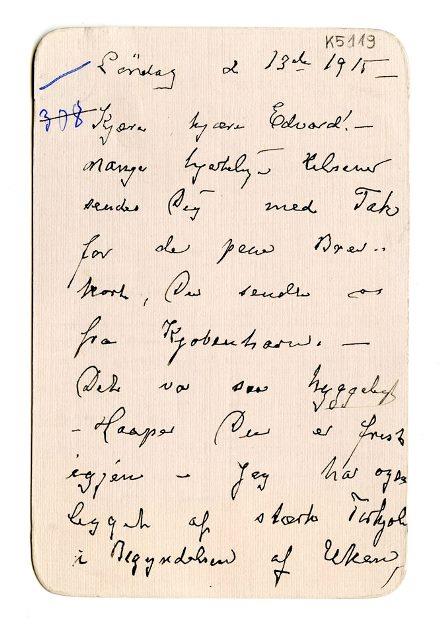 K5119
Söndag d 13de 1915 –
308 Kjære kjære Edvard! –
mange hjertelige Hilsener
sendes Dig med Tak
for de pene Brev-
kort, Du sendte os
fra Kjøbenhavn. –
Det var saa hyggeligt
– Haaper Du er frisk
igjen – Jeg har ogsaa
ligget af stærk Forkjøl
i Begyndelsen af Uken,